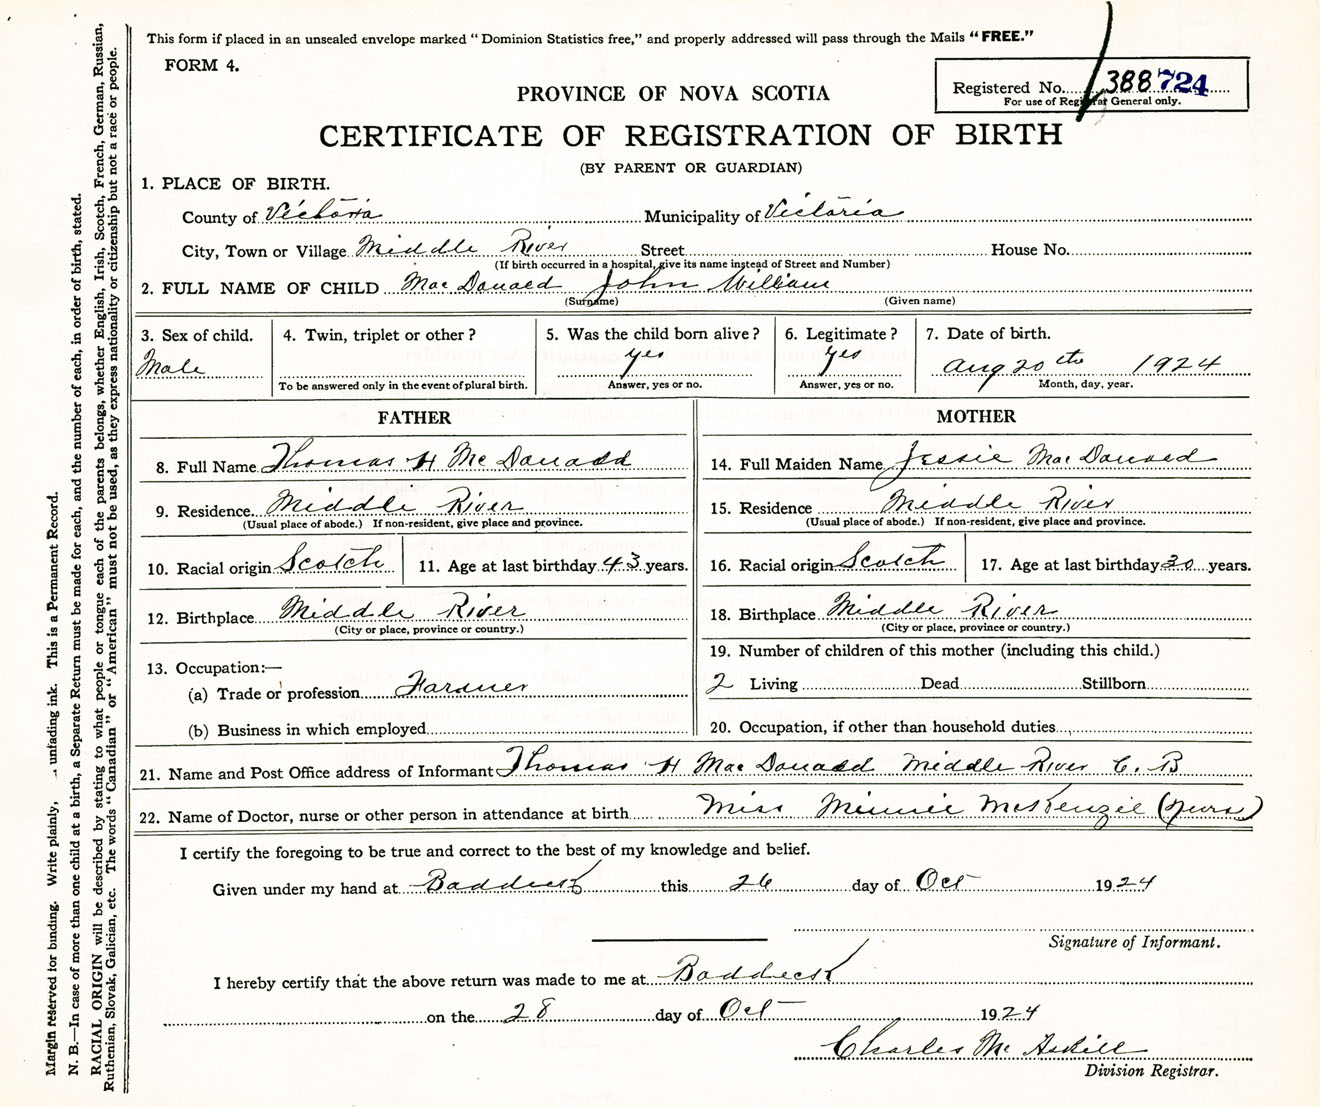 This form if placed in an unsealed envelope marked "Dominion Statistics free," and properly addressed will pass through the Mails "FREE."
FORM 4.
Registered No. 388724
For use of Registrar General only.
PROVINCE OF NOVA SCOTIA
CERTIFICATE OF REGISTRATION OF BIRTH
(BY PARENT OR GUARDIAN)
1. PLACE OF BIRTH.
County of Victoria Municipality of Victoria
City, Town or Village Middle River Street House No.
(If birth occurred in a hospital, give its name instead of Street and Number)
2. FULL NAME OF CHILD MacDonald John William
(Surname) (Given name)
3. Sex of child. 4. Twin, triplet or other? 5. Was the child born alive? 6. Legitimate? 7. Date of birth.
Male yes yes Aug 20th 1924
To be answered only in the event of plural birth. Answer, yes or no. Answer, yes or no. Month, day, year.
FATHER MOTHER
8. Full Name Thomas H McDonald 14. Full Maiden Name Jessie MacDonald
9. Residence Middle River 15. Residence Middle River
(Usual place of abode.) If non-resident, give place and province. (Usual place of abode.) If non-resident, give place and province.
10. Racial origin Scotch 11. Age at last birthday 43 years. 16. Racial origin Scotch 17. Age at last birthday 30 years.
12. Birthplace Middle River 18. Birthplace Middle River
(City or place, province or country.) (City or place, province or country.)
13. Occupation:—
(a) Trade or profession Farmer
(b) Business in which employed
19. Number of children of this mother (including this child.)
2 Living Dead Stillborn
20. Occupation, if other than household duties
21. Name and Post Office address of Informant Thomas H MacDonald Middle River C. B
22. Name of Doctor, nurse or other person in attendance at birth Miss Minnie McKenzie (nurse)
I certify the foregoing to be true and correct to the best of my knowledge and belief.
Given under my hand at Baddeck this 26 day of Oct 1924
Signature of Informant.
I hereby certify that the above return was made to me at Baddeck
on the 28 day of Oct 1924
Charles McAskill
Division Registrar.
Margin reserved for binding. Write plainly, unfading ink. This is a Permanent Record.
N. B.—In case of more than one child at a birth, a Separate Return must be made for each, and the number of each, in order of birth, stated.
RACIAL ORIGIN will be described by stating to what people or tongue each of the parents belongs, whether English, Irish, Scotch, French, German, Russian,
Ruthenian, Slovak, Galician, etc. The words "Canadian" or "American" must not be used, as they express nationality or citizenship but not a race or people.